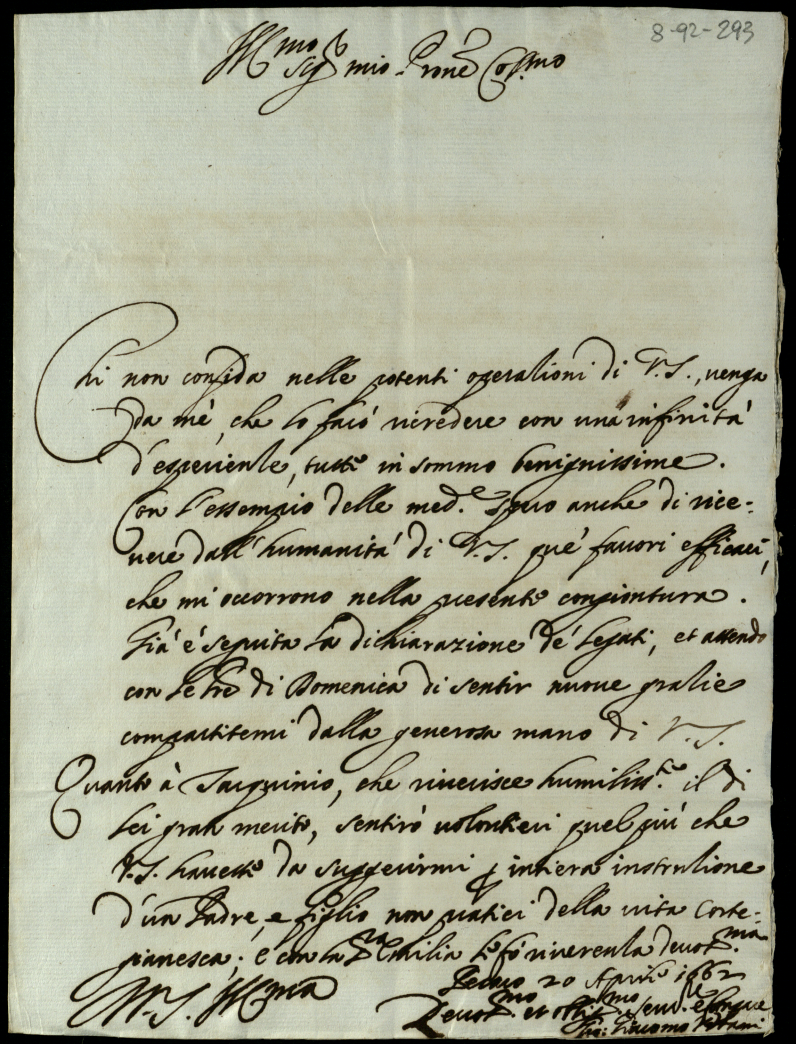 8-92-293
Ill.mo Sig.r mio Prone Col.mo
Chi non confida nelle potenti operationi di V.S., venga
da mè, che lo farò ricredere con una infinità
d'esperienze, tutte in sommo benignissime.
Con l'essempio delle med.e spero anche di rice-
vere dall'humanità di V.S. que' favori efficaci,
che mi occorrono nella presente congiontura.
Già è seguita la dichiarazione de' Legati, et attendo
con le lre di Domenica di sentir nuove gratie
compartitemi dalla generosa mano di V.S.
Quanto à Tarquinio, che riverisce humiliss.te il di
lei gran merito, sentirò volontieri quel più che
V.S. havesse da suggerirmi p intiera instrutione
d'un Padre, e figlio non pratici della vita Corte-
gianesca; e con la S.ra Emilia le fò riverenza devot.ma
Pesaro 20 Aprile 1662
V.S. Ill.ma
Devot.mo et obblig.mo ser.re
Gio: Giacomo